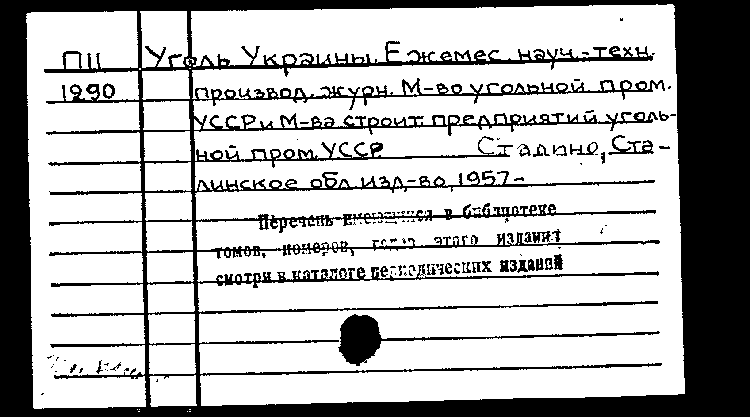 П11 Уголь Украины. Ежемес. науч.-техн.
1290 производ. журн. М-во угольной пром.
УССР и М-ва строит. предприятий уголь-
ной пром. УССР. Сталино, Ста-
линское обл. изд-во, 1957-
Перечень имеющихся в библиотеке
томов, номеров, годов этого издания
смотри в каталоге периодических изданий